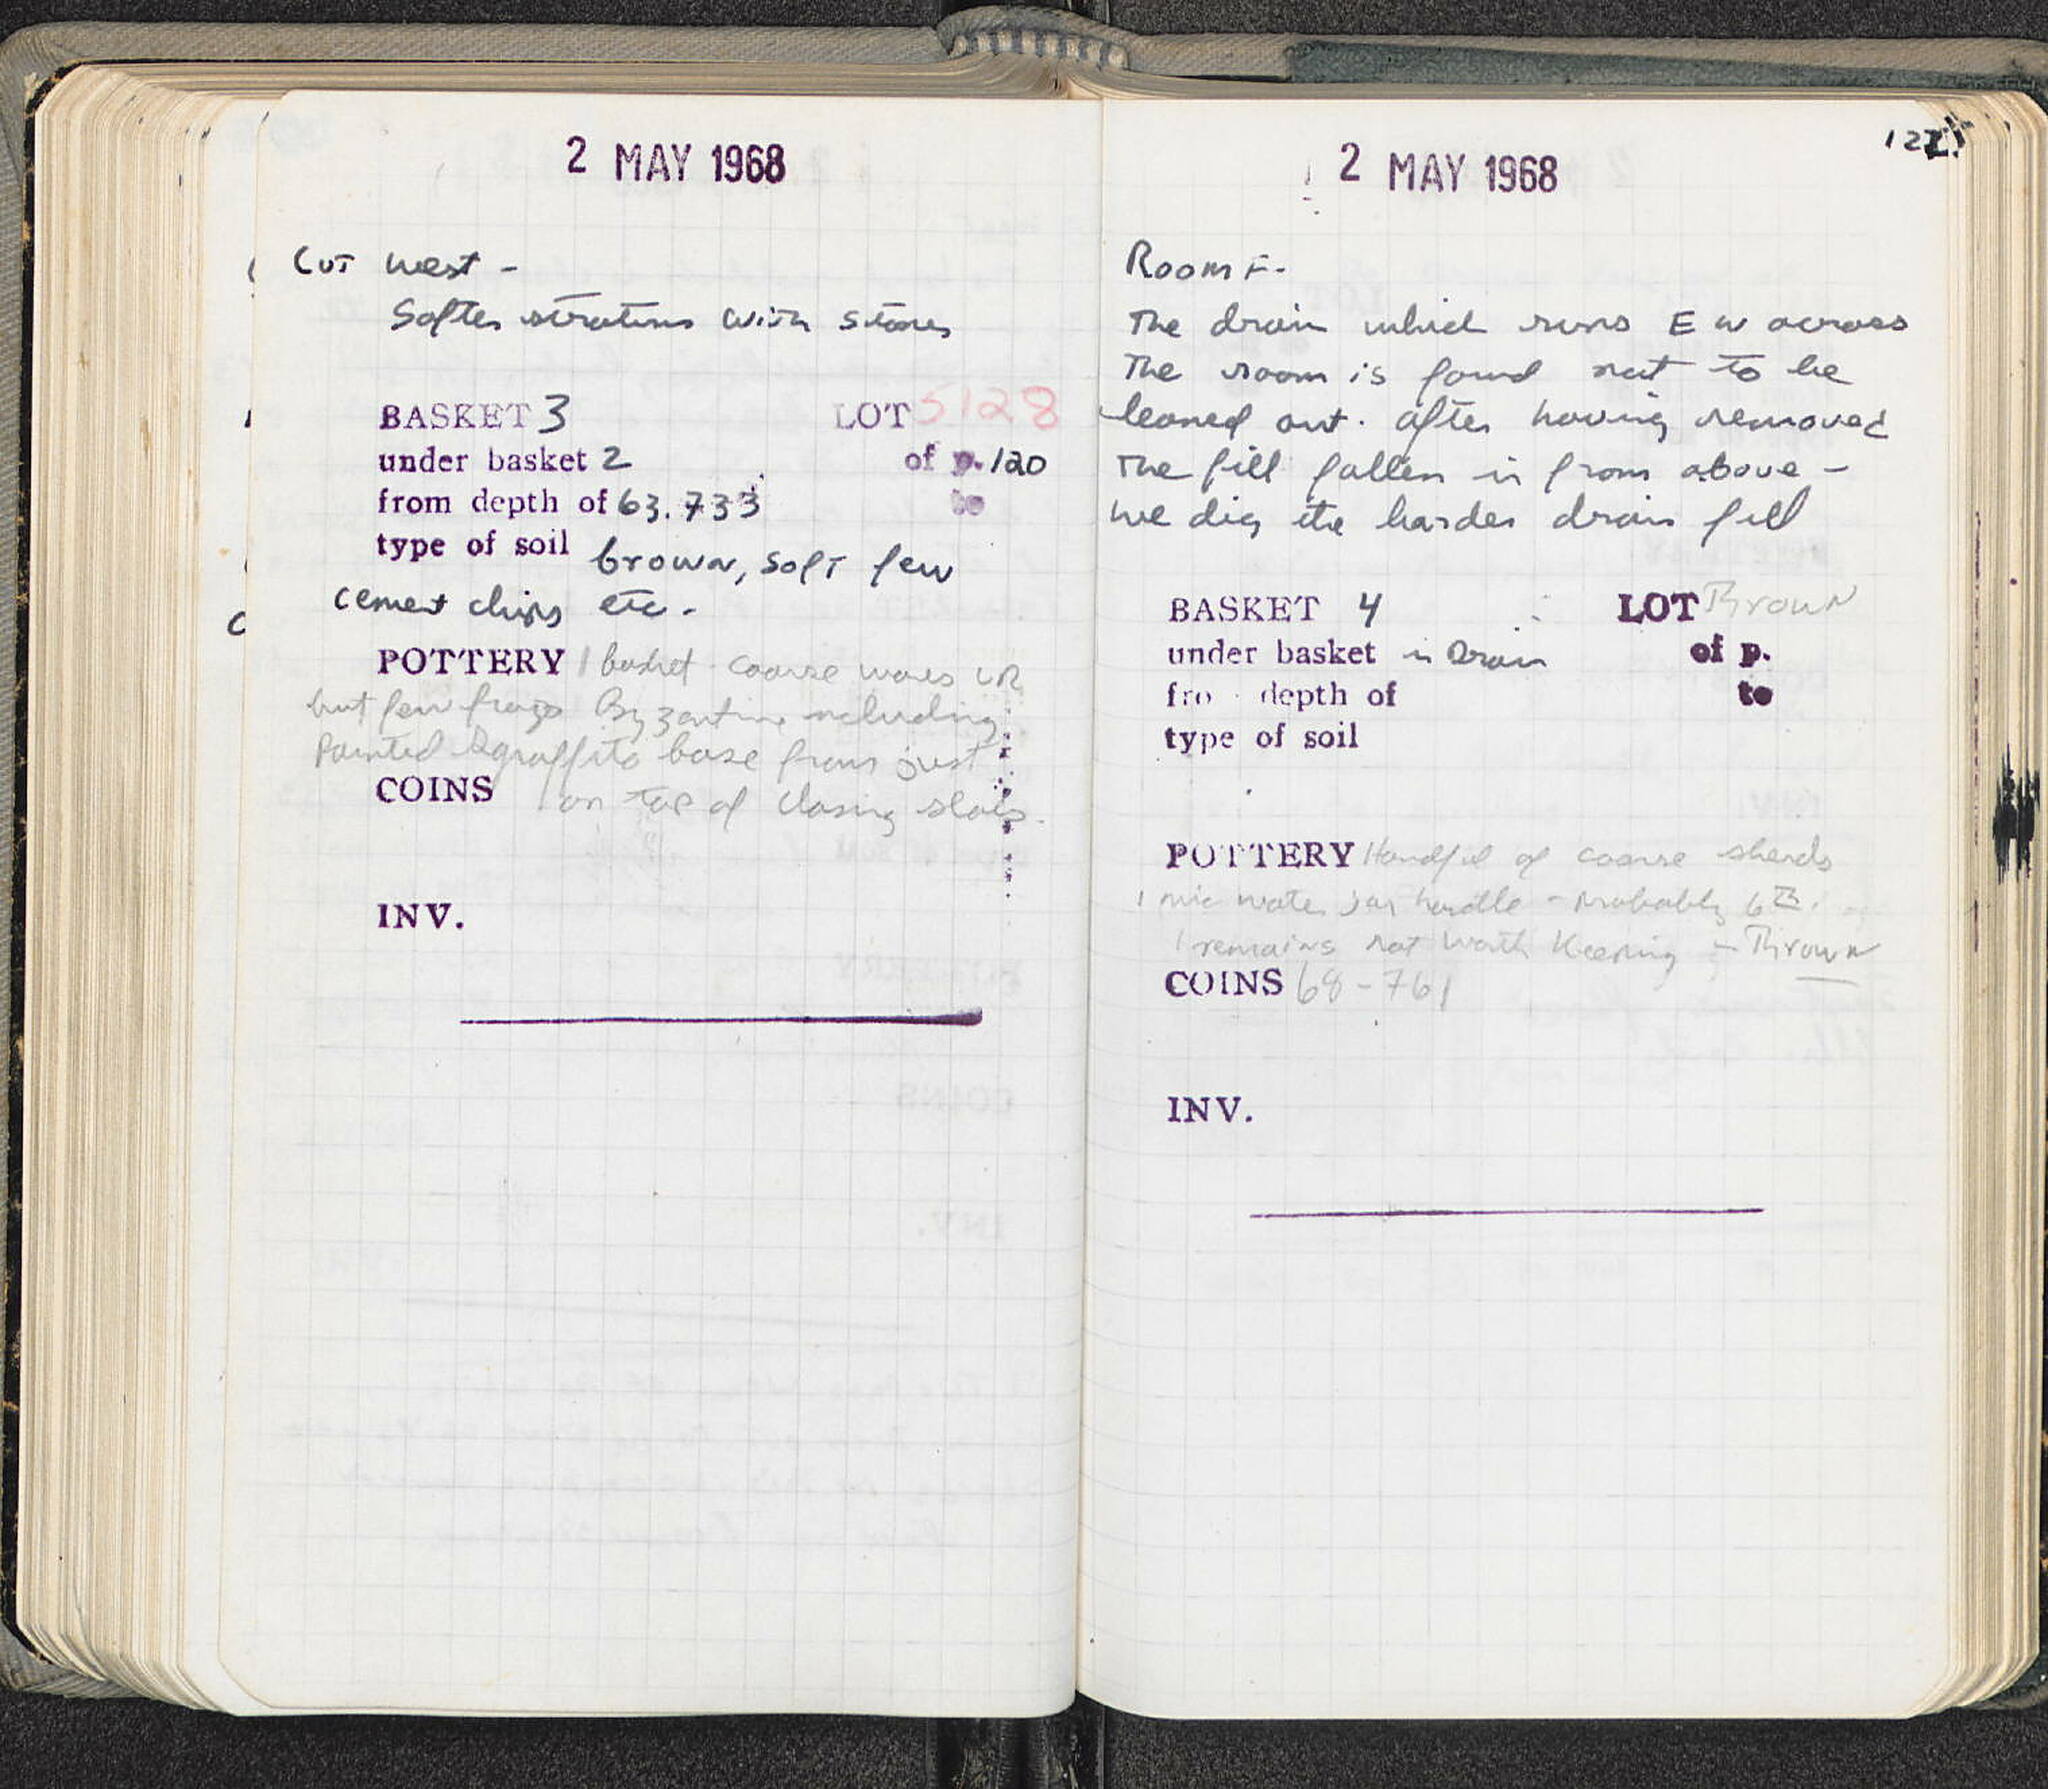 2 MAY 1968
Cut west -
Softer stratum with stones
BASKET 3 LOT 5128
under basket 2 of p. 120
from depth of 63.733 to
type of soil brown, soft few
cement chips etc.
POTTERY 1 basket coarse wares LR
but few frags Byzantine including
Painted Sgraffito base from just
COINS on top of closing slabs.
INV.
2 MAY 1968
Room F-
The drain which runs E W across
The room is found not to be
leaned out. after having removed
The fill fallen in from above -
we dig the harder drain fill
BASKET 4 LOT Thrown
under basket in Drain of p.
fro depth of to
type of soil
POTTERY Handful of coarse sherds
1 mic water jar handle - probably 6th
remains not worth Keeping - Thrown
COINS 68-761
INV.